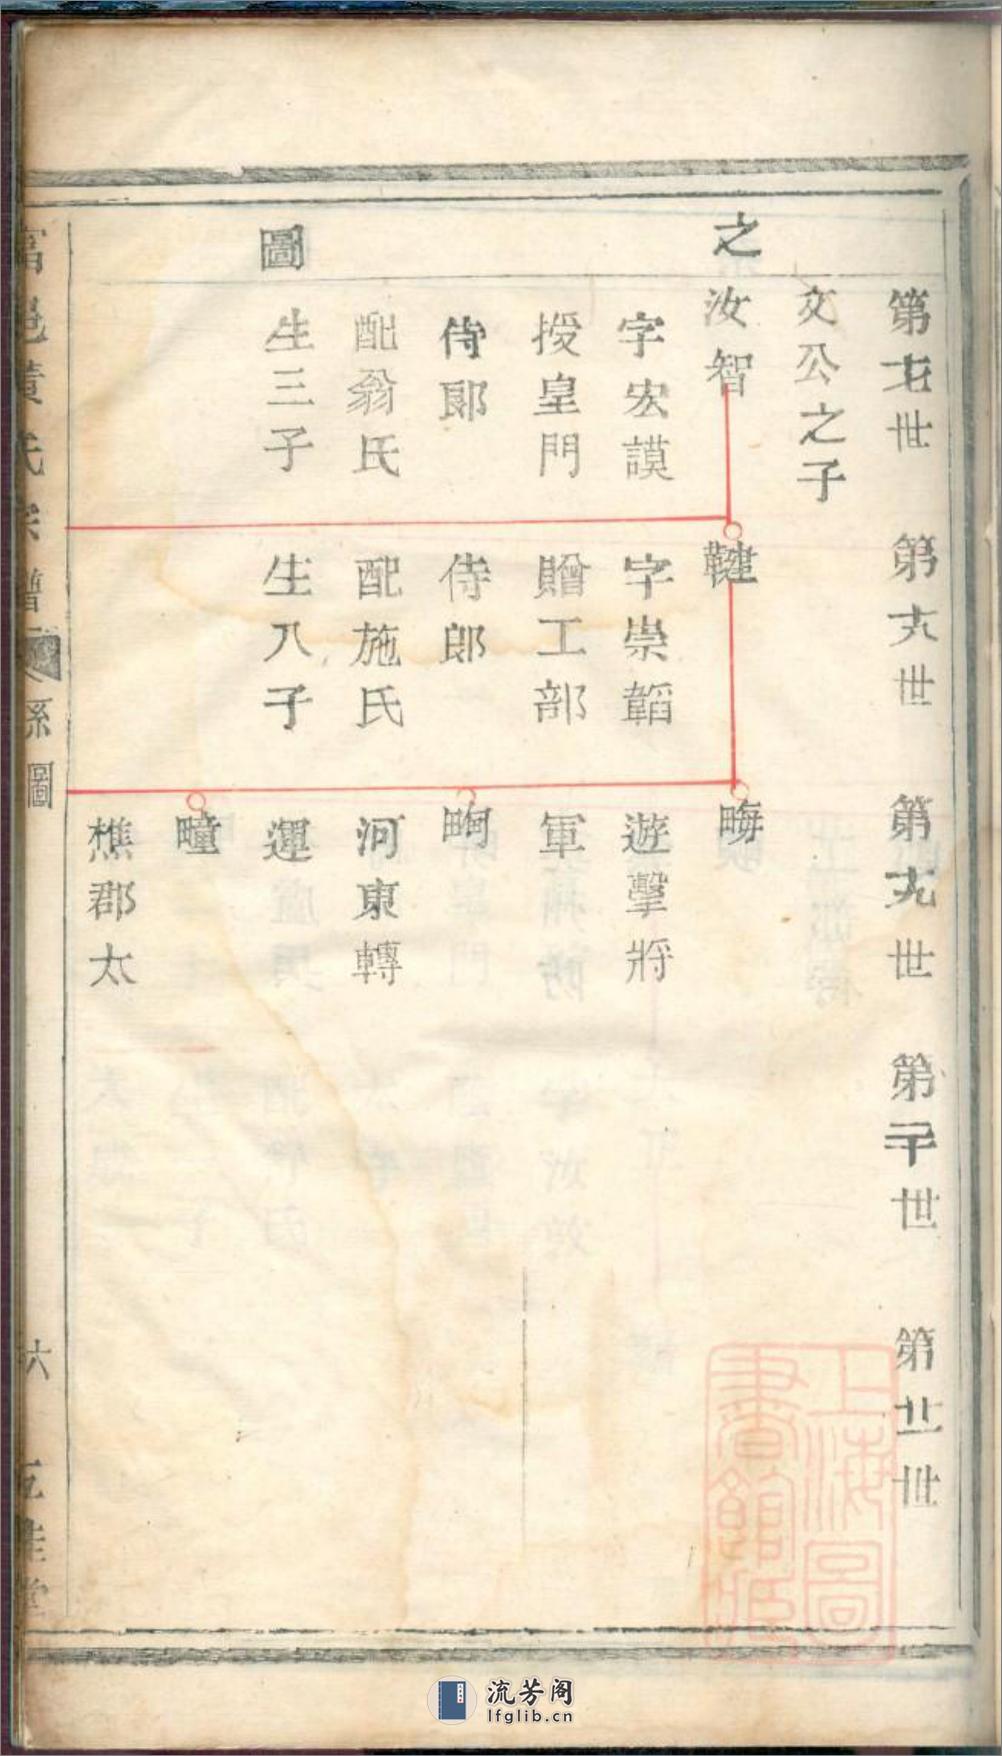 第十七世
第十八世
第十九世
第二十世
第廿一世
文公之子
之
汝智
鞬
畮
字宏謨
字崇韜
遊擊將
授皇門
贈工部
軍
侍郎
侍郎
畇
配翁氏
配施氏
河東轉
圖
生三子
生八子
運
疃
樵郡太
富邑黃氏宗譜
系圖
六
五桂堂
上海圖書館藏
流芳阁
lfglib.cn